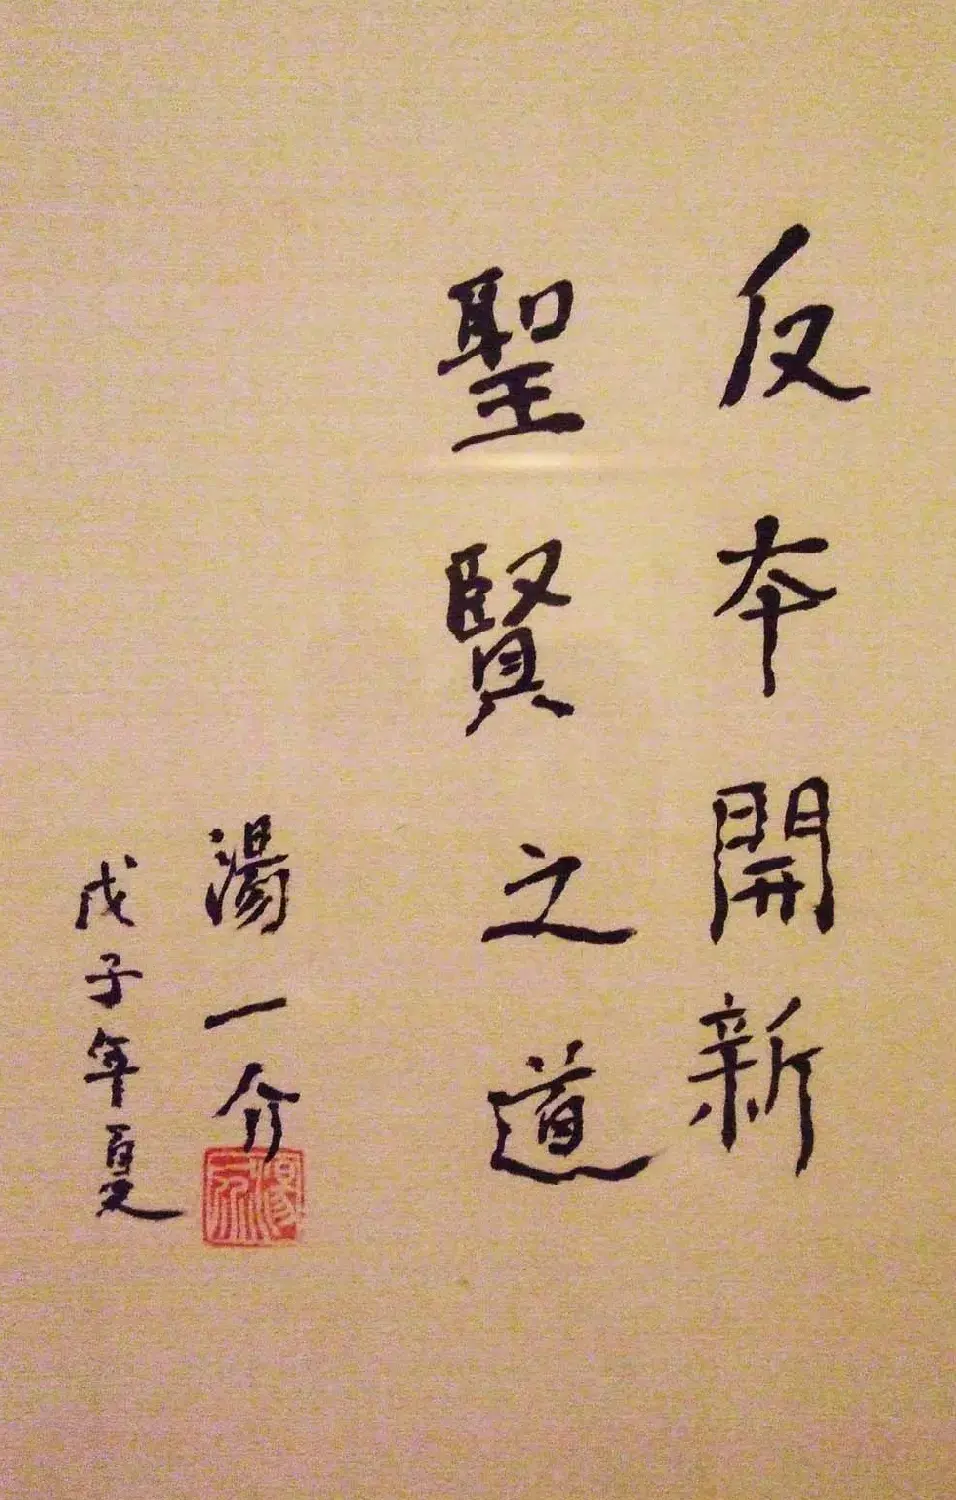 反本開新
聖賢之道
湯一介
戊子年夏